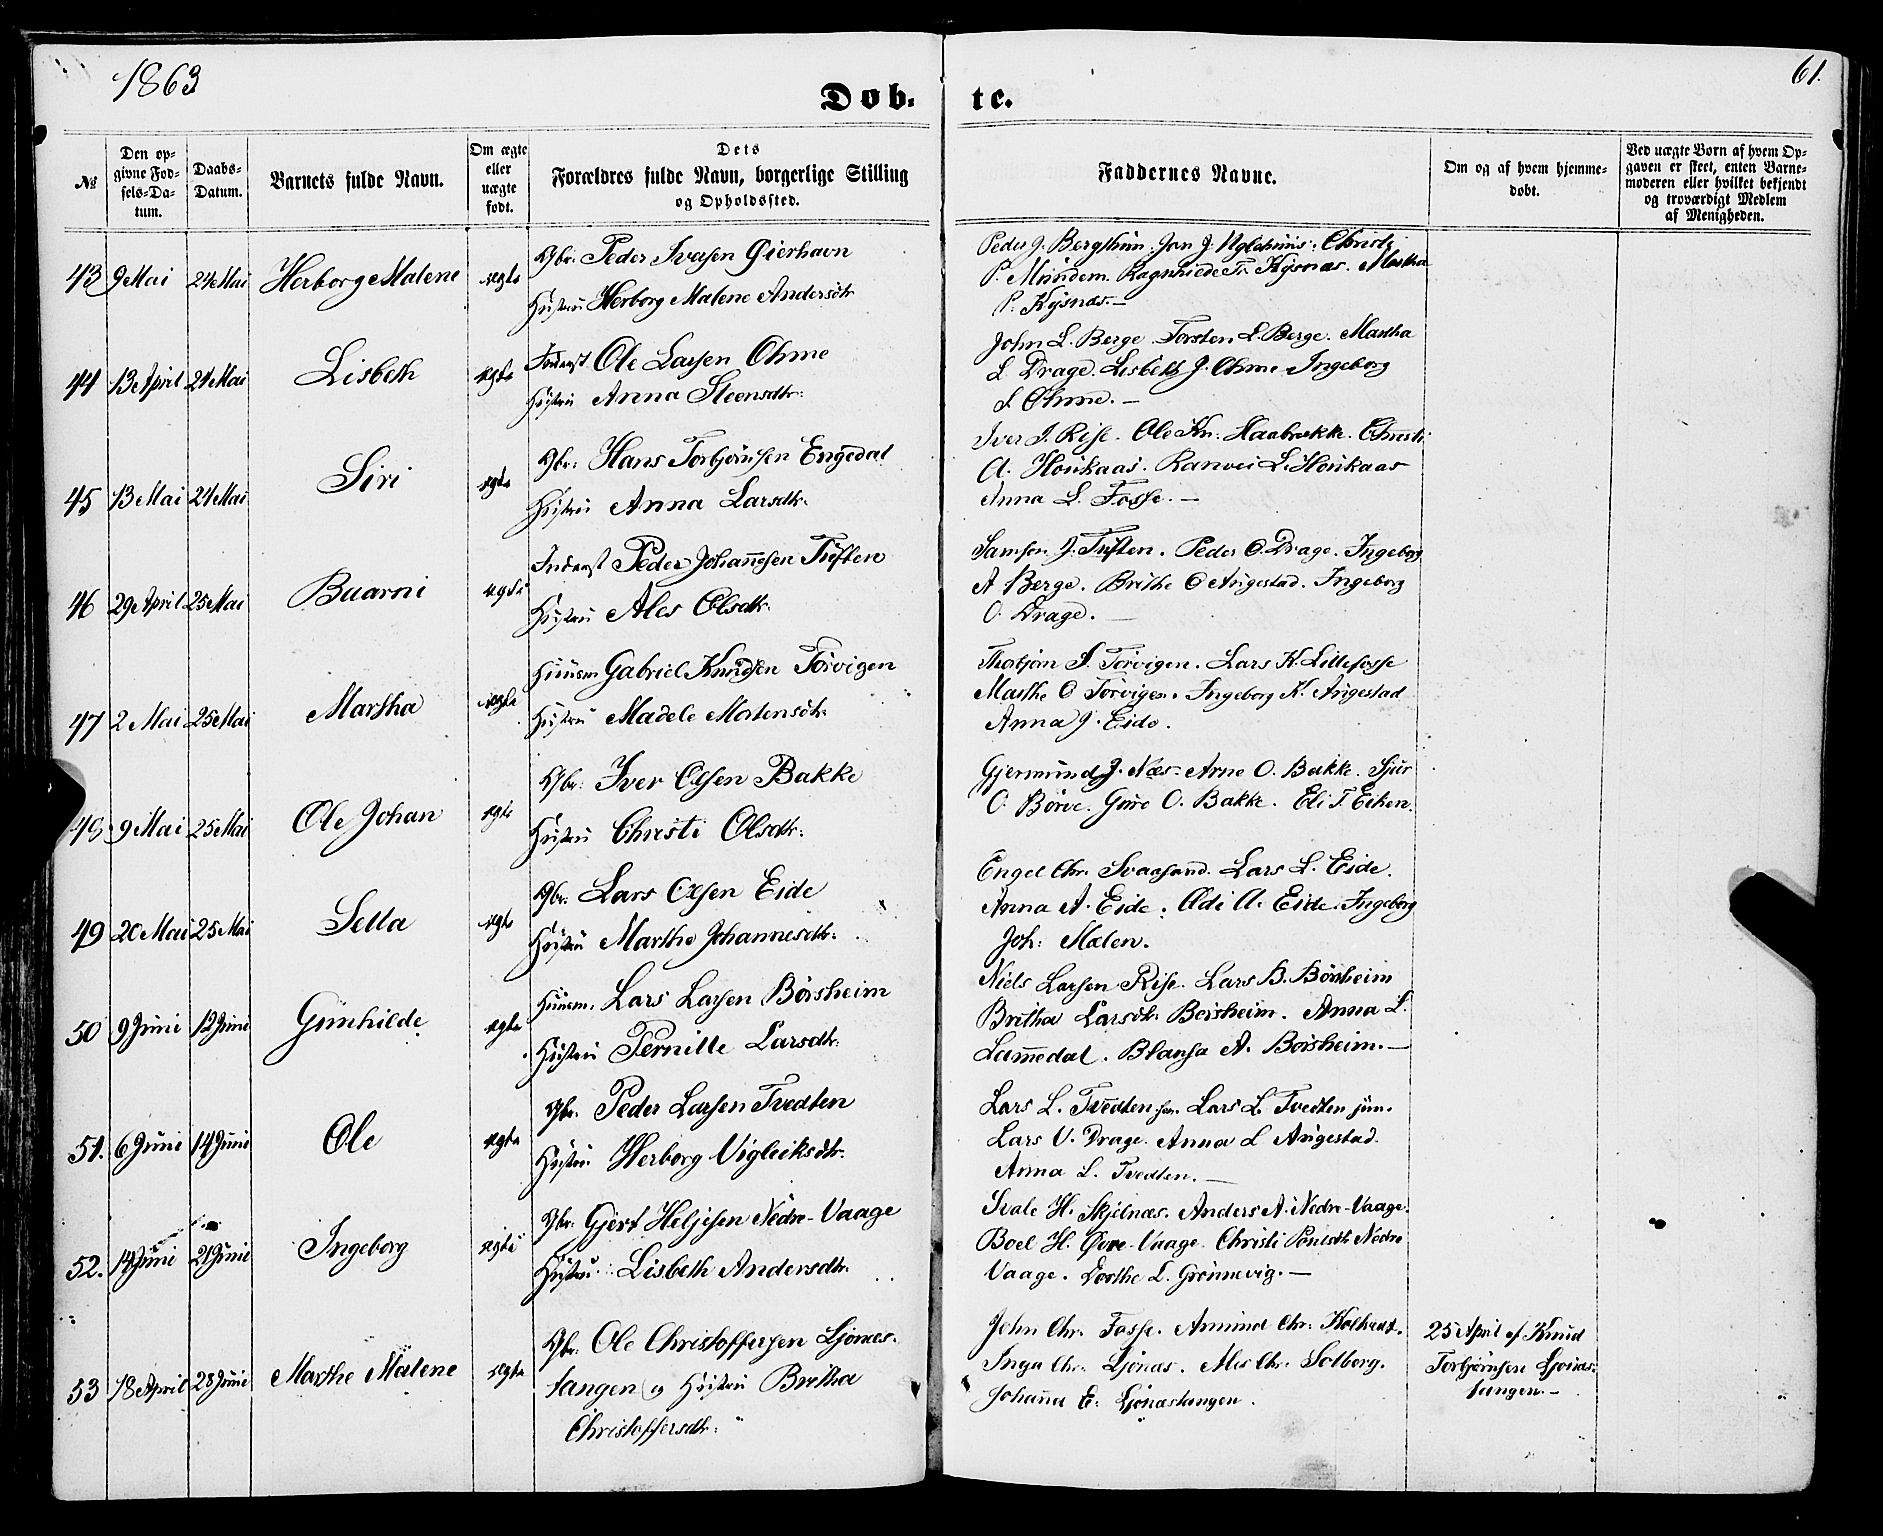 1863
61.
Døb-te.
№
Den op-
givne Fød-
sels-Da-
tum.
Daabs-
Datum.
Barnets fulde Navn.
Om ægte
eller
uægte
født.
Dets
Forældres fulde Navn, borgerlige Stilling
og Opholdssted.
Faddernes Navne.
Om og af hvem hjemme-
døbt.
Ved uægte Børn af hvem Op-
gaven er skeet, enten Barne-
moderen eller hvilket bekjendt
og troværdigt Medlem
af Menigheden.
43 9 Mai 24 Mai Herborg Malene ægte
Gbr. Peder Ivarsen Gierhavn
Hustru Herborg Malene Andersdtr
Peder J. Bergthun. Jan J. Christi
P. Mundem. Ragnhilde Kysnæs. Martha
P. Kysnæs.—
44 13 April 24 Mai Lisbeth ægte
Inderst Ole Larsen Ohme
Hustru Anna Steensdtr:
John L. Berge. Torsten L. Berge. Martha
L Drage. Lisbeth J. Ohme. Ingeborg
S. Ohme.—
45 13 Mai 24 Mai Siri ægte
Gbr: Hans Torbjørnsen Engedal
Hustru Anna Larsdtr.
Iver I. Rise. Ole Kn. Haabrekke. Christi
A. Houkaas. Ranvei L. Houkaas
Anna L. Fosse.—
46 29 April 25 Mai Buarni ægte
Inderst Peder Johannesen Tuften
Hustru Ales Olsdtr.
Samson J. Tuften. Peder O. Drage. Ingeborg
A Berge. Brithe O Augestad. Ingeborg
O. Drage.—
47 2 Mai 25 Mai Martha ægte
Huusm. Gabriel Knudsen Torvigen
Hustru Madele Mortensdtr.
Thorbjørn S. Torvigen. Lars K. Lillefosse
Marthe O Torvigen. Ingeborg K. Augestad
Anna J. Eide.
48 9 Mai 25 Mai Ole Johan ægte
Gbr. Iver Olsen Bakke
Hustru Christi Olsdtr:
Gjermund J. Næs. Arne O. Bakke. Sjur
O. Børve. Guro O. Bakke. Eli T. Eiken.
49 20 Mai 25 Mai Sella ægte
Gbr. Lars Olsen Eide
Hustru Marthe Johannesdtr.
Engel Chr. Svaasand. Lars L. Eide.
Anna A. Eide. Adi A. Eide. Ingeborg
Joh: Mælen.
50 9 Juni 12 Juni Gunhilde ægte
Huusm. Lars Larsen Børsheim
Hustru Pernille Larsdtr:
Niels Larsen Rise. Lars B. Børsheim
Britha Larsdtr. Børsheim. Anna L.
Lammedal. Blansa A. Børsheim.—
51. 6 Juni 14 Juni Ole ægte
Gbr. Peder Larsen Tvedten
Hustru Herborg Vigleiksdtr.
Lars L. Tvedten sen. Lars L Tvedten jun.
Lars V. Drage. Anna L Augestad.
Anna L. Tvedten.—
52. 14 Juni 21 Juni Ingeborg ægte
Gbr. Gjert Heljesen Nedre-Vaage
Hustru Lisbeth Andersdtr.
Svale H. Skjelnæs. Anders A. Nedre-Vaage.
Boel H. Øvre-Vaage. Christi Nedre
Vaage. Dorthe L. Grønnevig.—
53 18 April 28 Juni Marthe Malene ægte
Gbr. Ole Christoffersen Ljonæs-
tangen og Hustru Britha
Christoffersdtr:
John Chr. Fosse. Amund Chr: Kolltveit.
Inga Chr. Ljonæs. Ales Chr. Solberg.
Johanna E: Ljonæstangen.
25 April af Knud
Torbjørnsen Ljonæs-
tangen.—